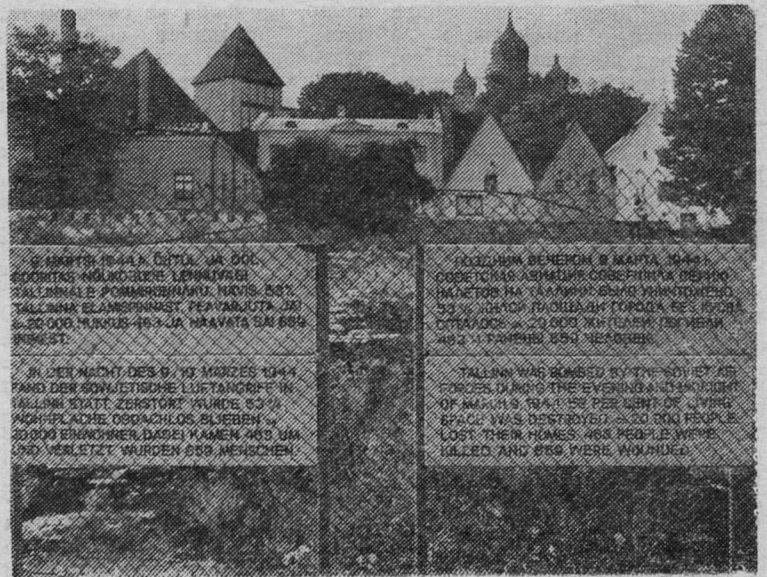 9. MÄRTSI 1944.A. ÕHTUL JA ÖÖL
SOORITAS NÕUKOGUDE LENNUVÄGI
TALLINNALE POMMIRÜNNAKU. HÄVIS 53%
TALLINNA ELAMISPINNAST, PEAVARJUTA JÄI
20 000, HUKKUS 463 JA HAAVATA SAI 659
INIMEST.
IN DER NACHT DES 9./10. MÄRZES 1944
FAND DER SOWJETISCHE LUFTANGRIFF IN
TALLINN STATT. ZERSTÖRT WURDE 53 %
WOHNFLÄCHE, OBDACHLOS BLIEBEN
20 000 EINWOHNER, DABEI KAMEN 463 UM
UND VERLETZT WURDEN 659 MENSCHEN.
ПОЗДНИМ ВЕЧЕРОМ 9 МАРТА 1944 Г.
СОВЕТСКАЯ АВИАЦИЯ СОВЕРШИЛА
НАЛЕТОВ НА ТАЛЛИНН. БЫЛО УНИЧТОЖЕНО
53 % ЖИЛОЙ ПЛОЩАДИ ГОРОДА, БЕЗ КРОВА
ОСТАЛОСЬ 20 000 ЖИТЕЛЕЙ, ПОГИБЛИ
463 И РАНЕНЫ 659 ЧЕЛОВЕК.
TALLINN WAS BOMBED BY THE SOVIET AIR
FORCES DURING THE EVENING AND NIGHT
OF MARCH 9, 1944. 53 PER CENT OF LIVING
SPACE WAS DESTROYED, 20 000 PEOPLE
LOST THEIR HOMES, 463 PEOPLE WERE
KILLED AND 659 WERE WOUNDED.